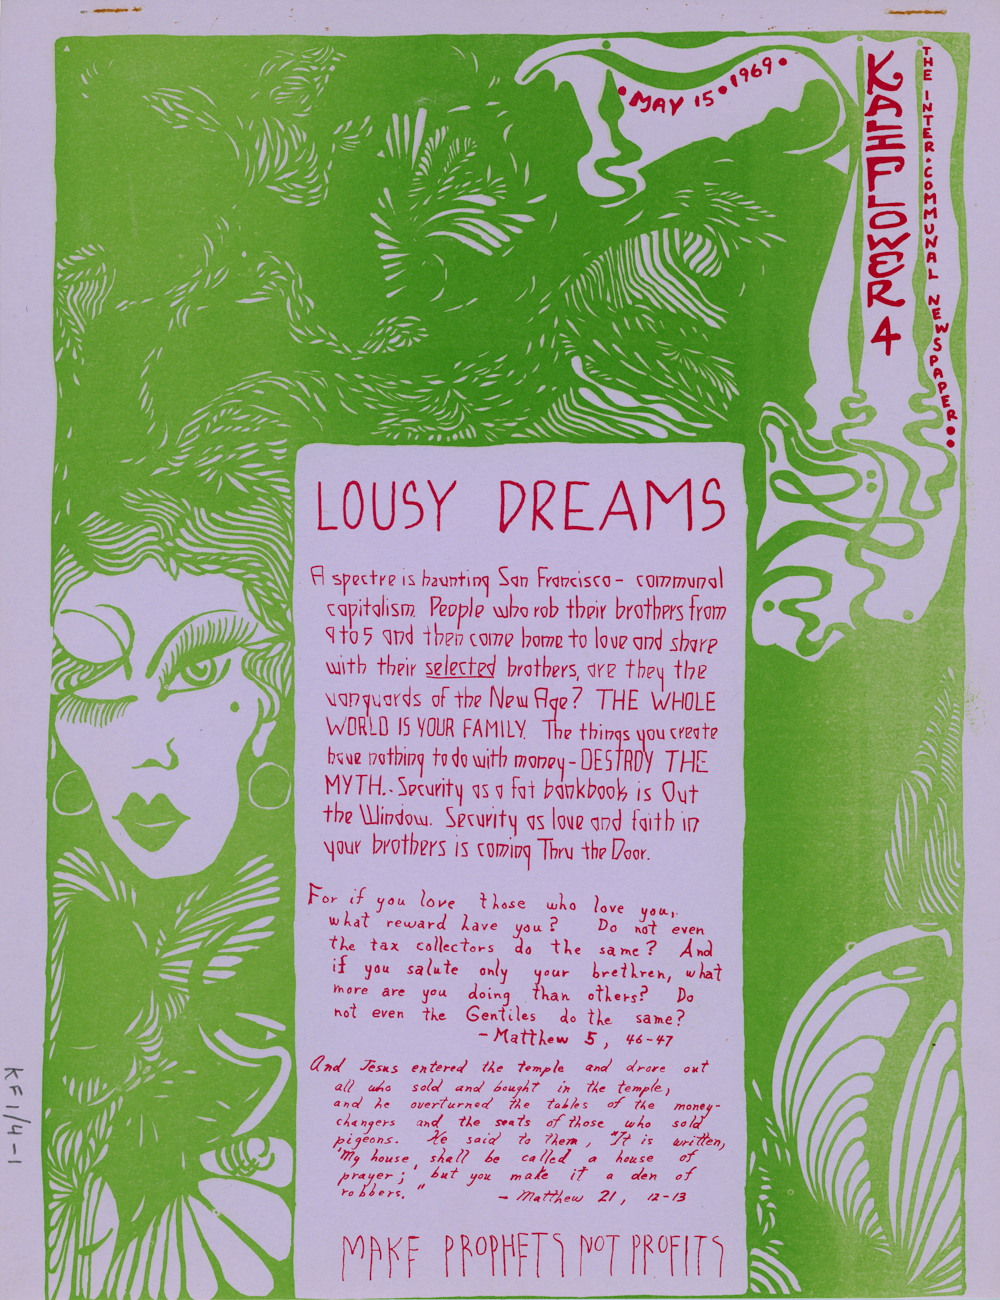 • MAY 15 • 1969 •
KALIFLOWER 4
THE INTER•COMMUNAL NEWSPAPER••
LOUSY DREAMS
A spectre is haunting San Francisco- communal
capitalism. People who rob their brothers from
9 to 5 and then come home to love and share
with their selected brothers, are they the
vanguards of the New Age? THE WHOLE
WORLD IS YOUR FAMILY. The things you create
have nothing to do with money-DESTROY THE
MYTH.. Security as a fat bankbook is Out
the Window. Security as love and faith in
your brothers is coming Thru the Door.
For if you love those who love you,
what reward have you? Do not even
the tax collectors do the same? And
if you salute only your brethren, what
more are you doing than others? Do
not even the Gentiles do the same?
-Matthew 5, 46-47
And Jesus entered the temple and drove out
all who sold and bought in the temple,
and he overturned the tables of the money-
changers and the seats of those who sold
pigeons. He said to them, "It is written,
'My house shall be called a house of
prayer; but you make it a den of
robbers."
- Matthew 21, 12-13
MAKE PROPHETS NOT PROFITS
KF1/4-1